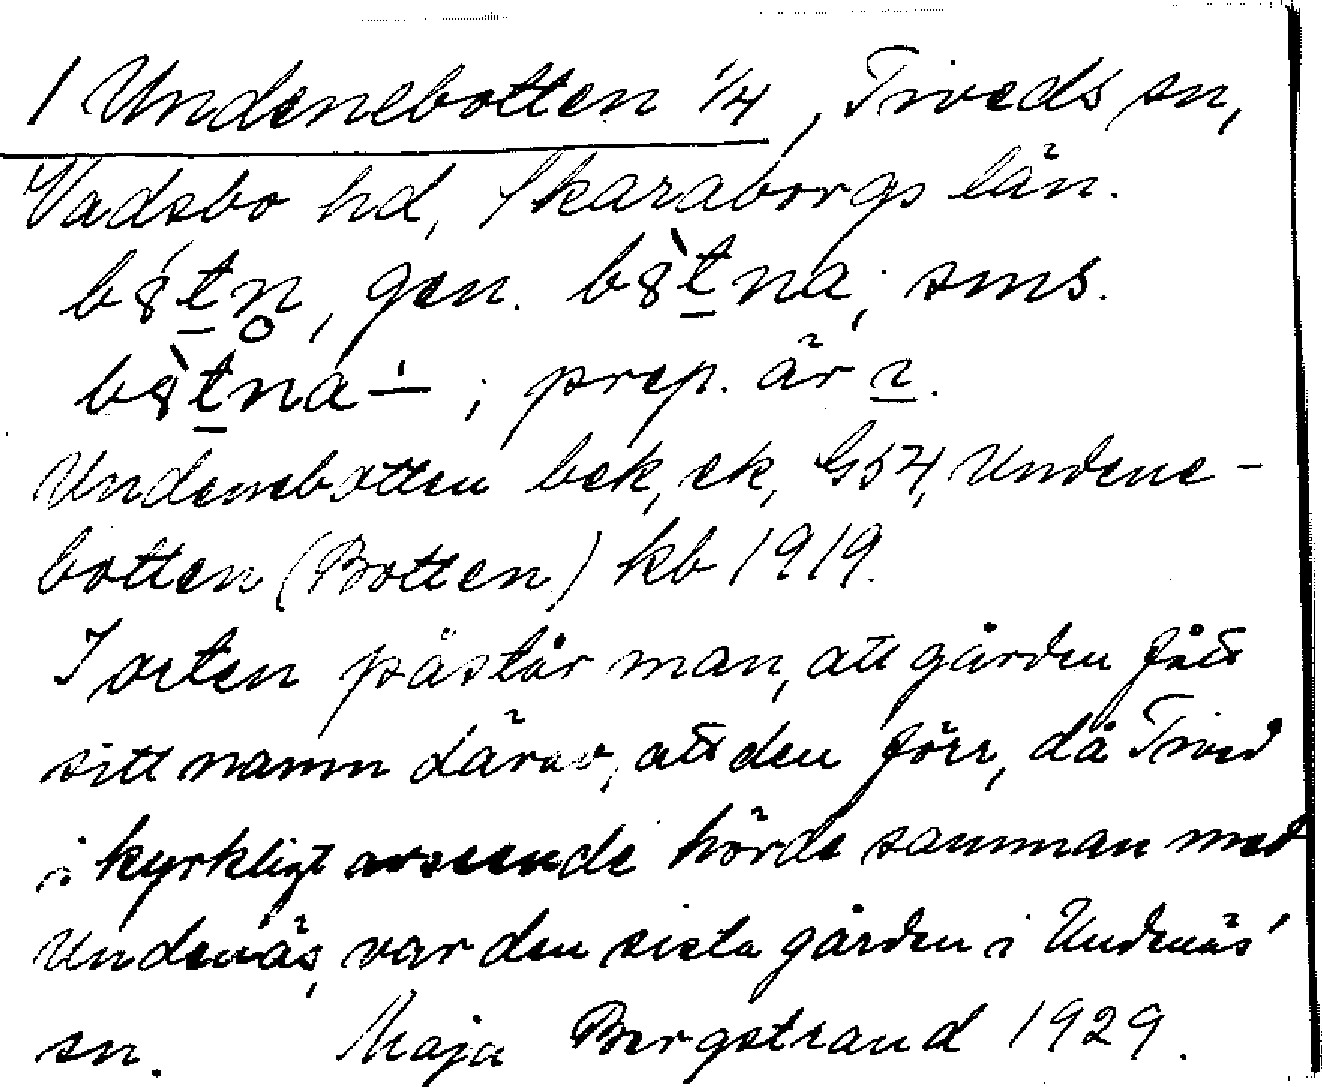 1 Undenebotten 1/4, Tiveds sn,
Vadsbo hd, Skaraborgs län.
gen. sms.
; prep. är i.
Undenebotten bek, ek, G54, Undene-
botten (Botten) kb 1919.
I orten påstår man, att gården fått
sitt namn därav, att den förr, då Tived
i kyrkligt avseende hörde samman med
Undenäs, var den sista gården i Undenäs'
sn. Maja Bergstrand 1929.